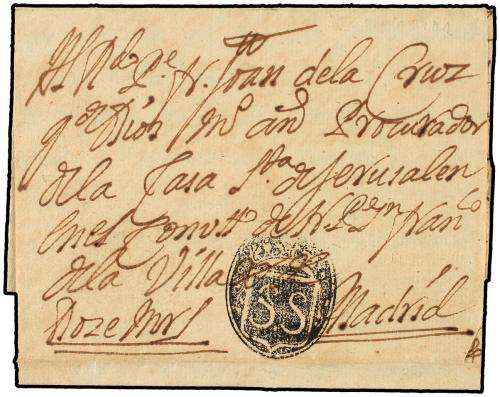 Al Rdo Pe fr. Juan dela Cruz
gde Dios ms ans Procurador
dela Casa Sta de Jerusalen
en el Convto de N. P. Sn Franco
dela Villa de
Doze Mrs Madrid